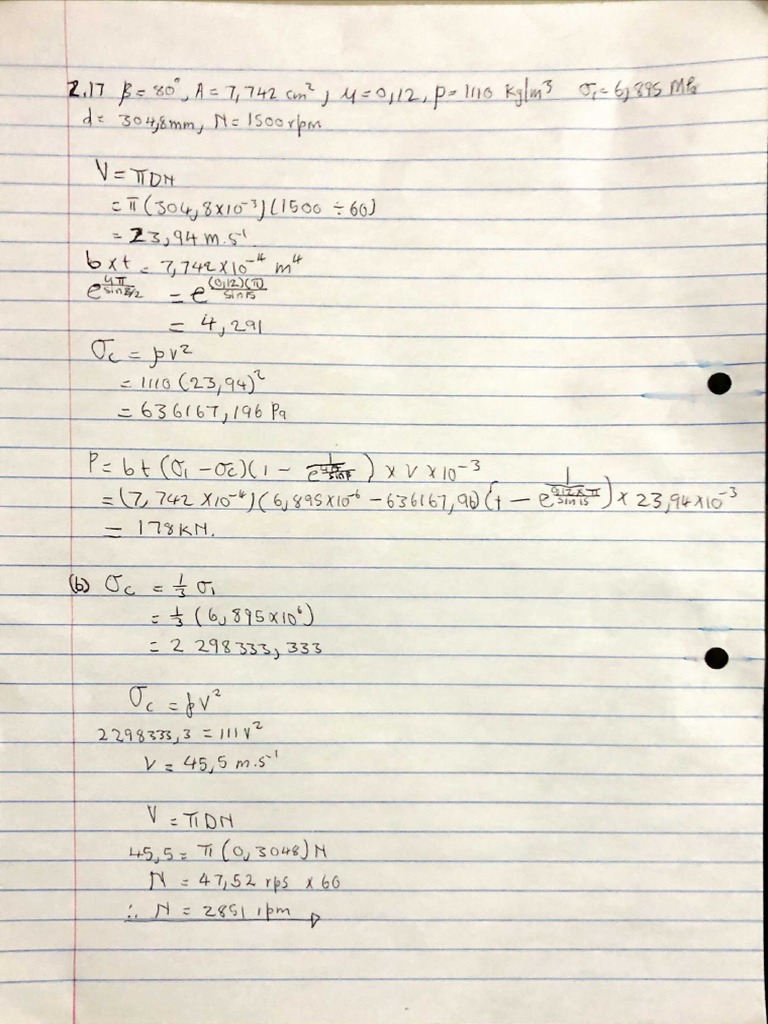 2.17 β = 30°, A = 7,742 cm², μ = 0,12, ρ = 1110 kg/m³ σ₁ = 6,895 MPa
d = 304,8mm, N = 1500rpm
V = πDN
= π(304,8×10⁻³)(1500 ÷ 60)
= 23,94 m.s⁻¹
b×t = 7,742×10⁻⁴ m⁴
e^(μπ/sinβ/2) = e^((0,12)(π)/sin15)
= 4,291
σc = ρv²
= 1110(23,94)²
= 636167,196 Pa
P = bt(σ₁ - σc)(1 - 1/e^(μπ/sinβ)) × v × 10⁻³
= (7,742×10⁻⁴)(6,895×10⁻⁶ - 636167,96)(1 - 1/e^(0,12×π/sin15)) × 23,94×10⁻³
= 178KN.
(b) σc = 1/3 σ₁
= 1/3 (6,895×10⁶)
= 2 298333,333
σc = ρV²
2298333,3 = 111V²
V = 45,5 m.s⁻¹
V = πDN
45,5 = π(0,3048)N
N = 47,52 rps × 60
∴ N = 2851 rpm